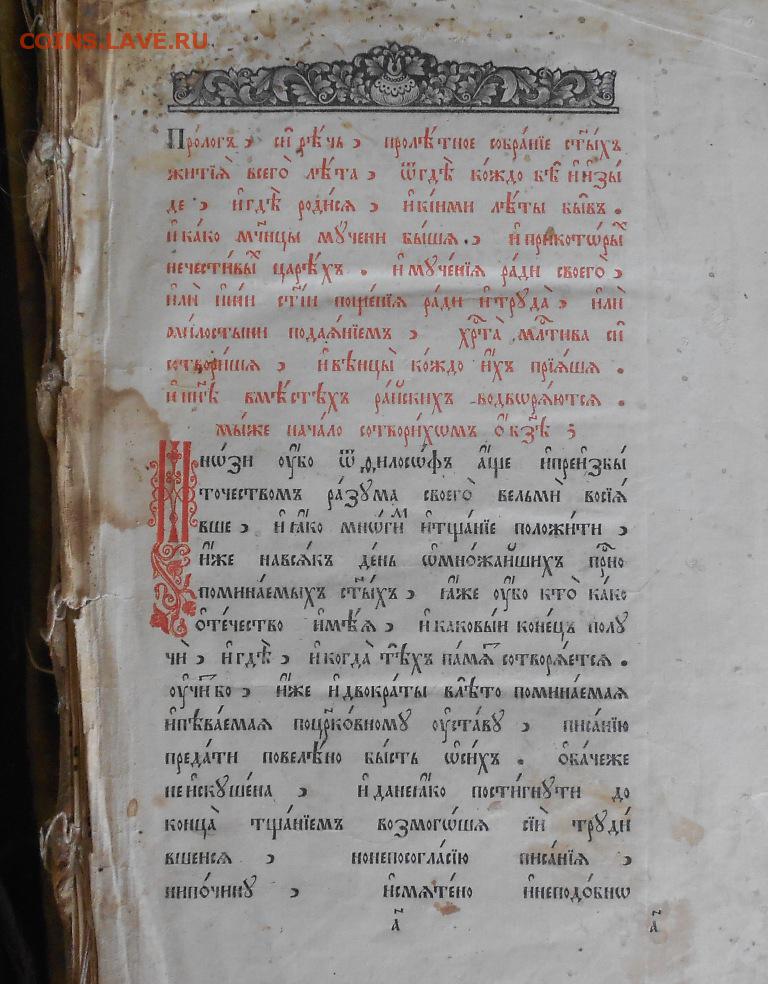 COINS.LAVE.RU
Про́логъ , си́ рѣ́чь , пролѣ́тное собра́нїе ст҃ы́хъ
житїѧ̀ всего̀ лѣ́та , ѿгдѣ̀ ко́ждо бѣ̀ и҆и҆зы
де , и҆гдѣ̀ роди́сѧ , и҆кі́ими лѣ́ты бы́въ .
и҆ка́ко мч҃нцы мꙋчени бы́шѧ . , и҆прикото́ры
нечести́вы царѣ́хъ . и҆мꙋче́нїѧ ра́ди своего̀ ,
и҆лѝ ра́ди и҆трꙋда̀ , и҆лѝ
милостыни подаѧ́нїемъ , хр҃та̀ мл҃тива си
сотвори́шѧ , и҆вѣнцы̀ ко́ждо и҆́хъ прїѧ́шѧ .
и҆нн҃ѣ вмѣ́стѣхъ ра́йскихъ водворѧ́ютсѧ .
мы́же нача́ло сотвори́хѡмъ ѡ҆бз҃ѣ ;
Мно́зи ᲂу҆́бо ѿ филосо́фъ а҆́ще и҆преи҆збы́
точествомъ ра́зꙋма своего̀ вельмѝ восїѧ́
вше , и҆ ꙗ҆́ко мно́ги м и҆тща́нїе положи́ти ,
и҆́же навсѧ́къ де́нь ѡ҆мно́жайшихъ пр҇но
помина́емыхъ ст҃ы́хъ , ꙗ҆́же ᲂу҆́бо кто̀ ка́ко
ѻ҆те́чество и҆мѣ́ѧ , и҆каковы́й коне́цъ полꙋ
чѝ , и҆гдѣ̀ , и҆когда̀ тѣ́хъ па́мѧ сотворѧ́етсѧ .
ᲂу҆чи́ бо , и҆́же и҆двокра́ты влѣ́то помина́емаѧ
и҆пѣва́емаѧ поцр҃ко́вномꙋ ᲂу҆ста́вꙋ , писа́нїю
преда́ти повелѣ́но бы́сть ѡ҆си́хъ . ѻ҆ба́чеже
неи҆скꙋше́на , и҆данеꙗ҆́ко пости́гнꙋти до
конца̀ тща́нїемъ возмого́шѧ сїѝ трꙋди́
вшеисѧ , нонепосогла́сїю писа́нїѧ ,
нипочи́нꙋ , и҆смѧте́но и҆неподо́бнѡ
а҃
а҃